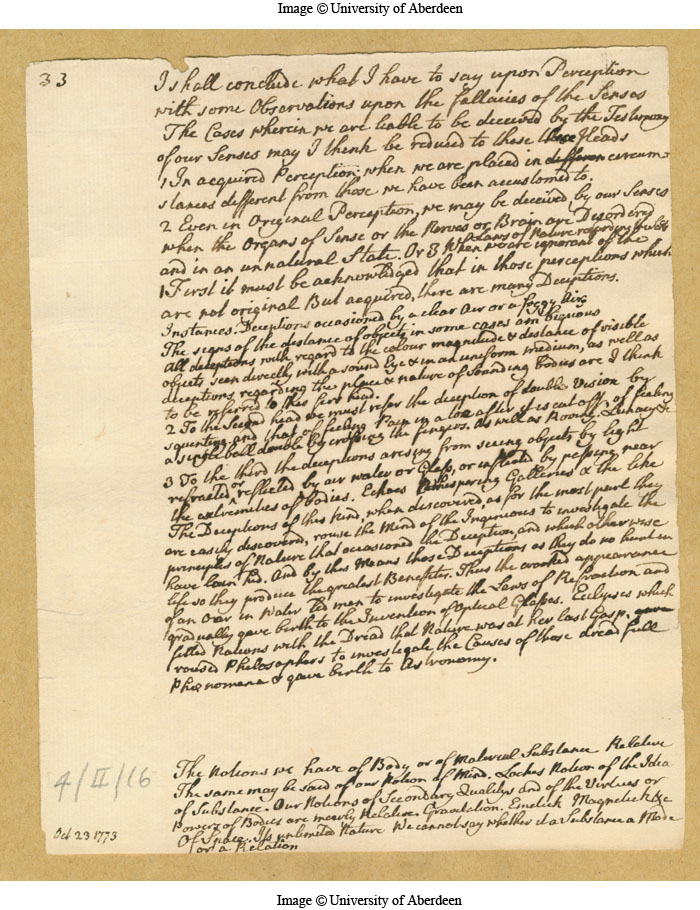 Image © University of Aberdeen
33
I shall conclude what I have to say upon Perception
with some Observations upon the fallacies of the Senses
The Cases wherein we are liable to be deceived by the Testimony
of our Senses may I think be reduced to these three Heads
1 In acquired Perception when we are placed in different circum-
stances different from those we have been accustomed to.
2 Even in Original Perception, we may be deceived by our Senses
when the Organs of Sense or the Nerves or Brain are Disordered
Laws of Nature regarding
and in an unnatural State. Or 3 When we are ignorant of the
1 First it must be acknowledged that in those perceptions which
are not original But acquired, there are many Deceptions.
Instances. Deceptions occasioned by a clear Air or a foggy Air,
The signs of the distance of objects in some cases ambiguous
All deceptions with regard to the colour magnitude & distance of visible
objects seen directly with a sound Eye & in an uniform medium, as well as
deceptions regarding the place & nature of sounding bodies are I think
to be referred to this first head.
2 To the Second head we must refer the deception of double Vision by
squinting and that of feeling Pain in a toe after it is cut off, of feeling
a single ball double by crossing the fingers. As well as Roving Lunacy &c
3 To the third the deceptions arising from seeing objects by light
refracted or reflected by air water or Glass, or inflected by passing near
the extremities of bodies. Echoes Whispering Galleries & the like
The Deceptions of this kind, when discovered, as for the most part they
are easily discovered, rouse the Mind of the Ingenious to investigate the
principles of Nature that occasioned the Deception, and which otherwise
have lain hid. And by this Means those Deceptions as they do no hurt in
life so they produce the greatest Benefites. Thus the crooked appearance
of an Oar in Water led men to investigate the Laws of Refraction and
gradually gave birth to the Invention of Optical Glasses. Eclipses which
filled Nations with the Dread that Nature was at her last Gasp. gave
roused Philosophers to investigate the Causes of those dreadfull
Phænomena & gave birth to Astronomy.
4/II/16
The Notions we have of Body or of Material Substance Relative
The same may be said of our Notion of Mind. Lockes Notion of the Idea
of Substance. Our Notions of Secondary Qualitys and of the Virtues or
Powers of Bodies are merely Relative. Gravitation. Emetick Magnetick &c
Oct 23 1773
Of Space. Its unlimited Nature We cannot say whether it a Substance a Mode
or a Relation
Image © University of Aberdeen